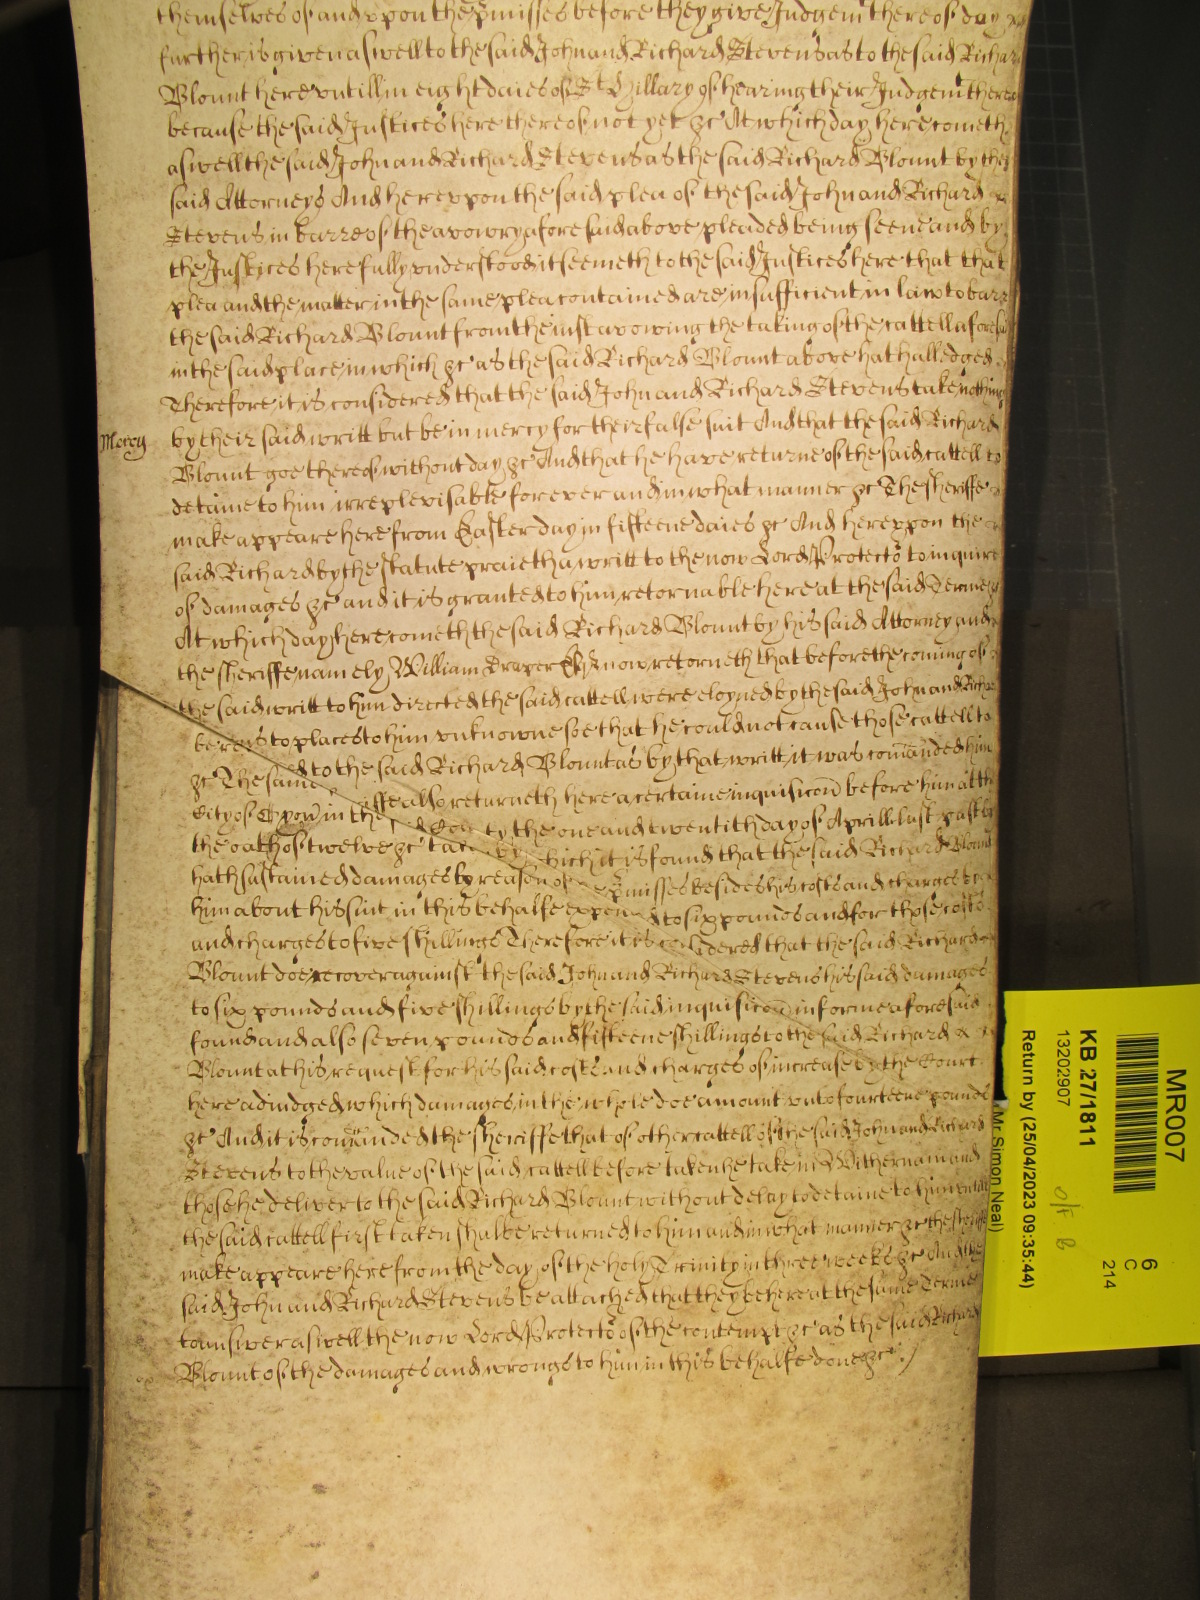 themselves of and vpon the p̃misses before they give Judgem̃t thereof day
further is given aswell to the said John and Richard Stevens as to the said Richard
Blount here vntill in eight daies of St Hillary of hearing their Judgem̃t thereof
because the said Justices here thereof not yet &c At which day here cometh
aswell the said John and Richard Stevens as the said Richard Blount by their
said Attorneys And herevpon the said plea of the said John and Richard
Stevens in barre of the avowry aforesaid above pleaded being seene and by
the Justices here fully vnderstood it seemeth to the said Justices here that that
plea and the matter in the same plea contained are insufficient in law to barr
the said Richard Blount from the just avowing the taking of the cattell aforesaid
in the said place in which &c as the said Richard Blount above hath alledged
Therefore it is considered that the said John and Richard Stevens take nothing
Mercy
by their said writt but be in mercy for their false suit And that the said Richard
Blount goe thereof without day &c And that he have returne of the said cattell to
detaine to him irreplevisable for ever and in what manner &c The sheriffe
make appeare here from Easter day in fifteene daies &c And herevpon the
said Richard by the statute praieth a writt to the now Lord Protector to inquire
of damages &c and it is granted to him retornable here at the said Terme
At which day here cometh the said Richard Blount by his said Attorney and
the sheriffe namely William Draper Esq now retorneth that before the coming of
the said writt to him directed the said cattell were eloyned by the said John and Richard
Stevens to places to him vnknowne soe that he could not cause those cattell to
&c The same to the said Richard Blount as by that writt it was com̃anded him
sheriffe also returneth here a certaine inquisicõn before him at the
City of Oxon in the said County the one and twentith day of Aprill last past by
the oath of twelve &c taken by which it is found that the said Richard Blount
hath sustained damages by reason of the p̃misses besides his costs and charges by
him about his suit in this behalfe expended to six pounds and for those costs
and charges to five shillings Therefore it is considered that the said Richard
Blount doe recover against the said John and Richard Stevens his said damages
to six pounds and five shillings by the said inquisicõn in forme aforesaid
found and also seven pounds and fifteene shillings to the said Richard
Blount at his request for his said costs and charges of increase by the Court
here adiudged which damages in the whole doe amount vnto fourteene pounds
&c And it is com̃anded the sheriffe that of other cattell of the said John and Richard
Stevens to the value of the said cattell before taken he take in Withernam and
those he deliver to the said Richard Blount without delay to detaine to him vntill
the said cattell first taken shalbe returned to him and in what manner &c the sheriffe
make appeare here from the day of the holy Trinity in three weeks &c And the
said John and Richard Stevens be attached that they be here at the same Terme
to answer aswell the now Lord Protector of the contempt &c as the said Richard
Blount of the damages and wrongs to him in this behalfe done &c
MR007
KB 27/1811
13202907
Return by (25/04/2023 09:35:44)
Mr Simon Neal)
6
C
214